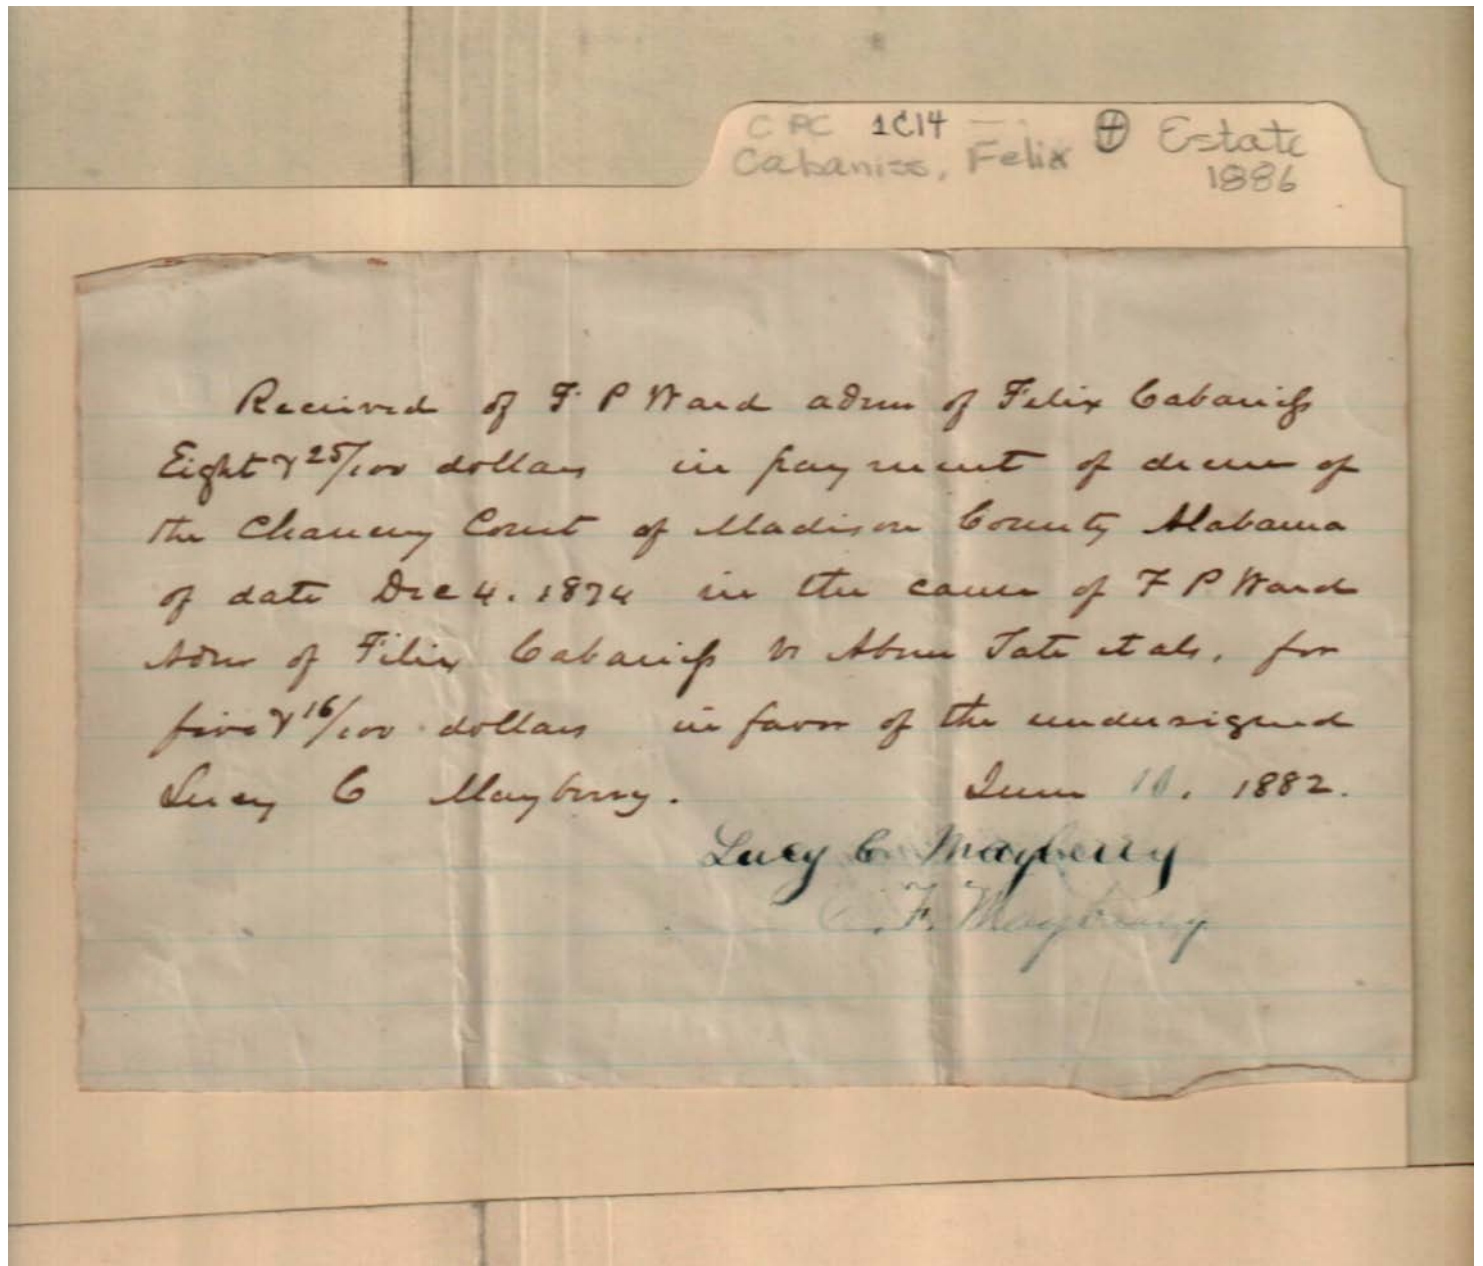 C PC 1C14 Estate
Cabaniss, Felix 1886
Received of F P Ward admr of Felix Cabaniss
Eight & 25/100 dollars in payment of decree of
the Chancery Court of Madison County Alabama
of date Dec 4. 1874 in the cause of F P Ward
Admr of Felix Cabaniss vs Abner Tate et als, for
five & 16/100 dollars in favor of the undersigned
Lucy C Mayberry. June 10. 1882.
Lucy C. Mayberry
F. Mayberry